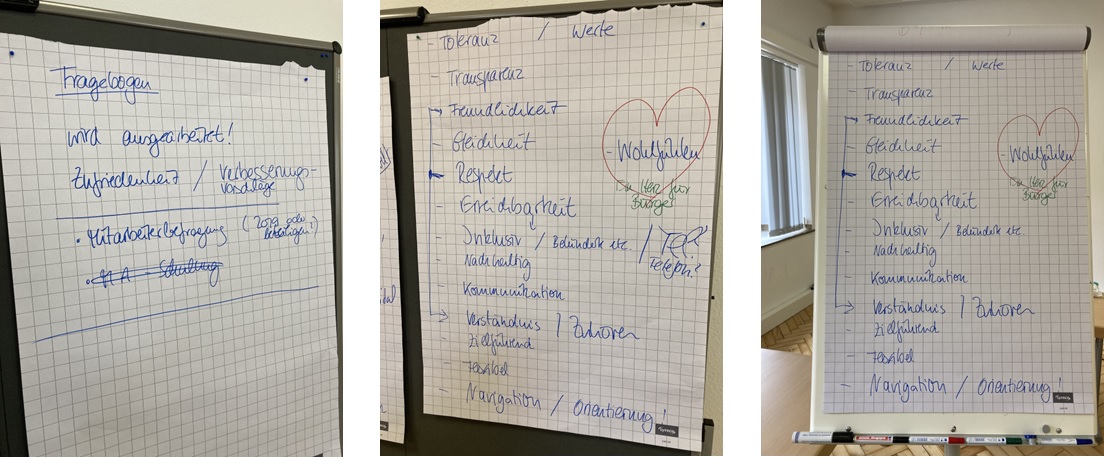 Fragebogen
wird ausgearbeitet!
Zufriedenheit / Verbesserungs-
vorschläge
• Mitarbeiterbefragung
• MA - Schulung
- Toleranz / Werte
- Transparenz
Freundlichkeit
- Gleichheit
Respekt
- Erreichbarkeit
- Inklusiv / Behinderte etc. /
- Nachhaltig
- Kommunikation
Verständnis / Zuhören
- Zielführend
- flexibel
- Navigation / Orientierung!
- Wohlfühlen
Ein Herz für
Bürger
Telefon?
- Toleranz / Werte
- Transparenz
Freundlichkeit
- Gleichheit
Respekt
- Erreichbarkeit
- Inklusiv / Behinderte etc.
- Nachhaltig
- Kommunikation
Verständnis / Zuhören
- Zielführend
- flexibel
- Navigation / Orientierung!
- Wohlfühlen
Ein Herz für
Bürger